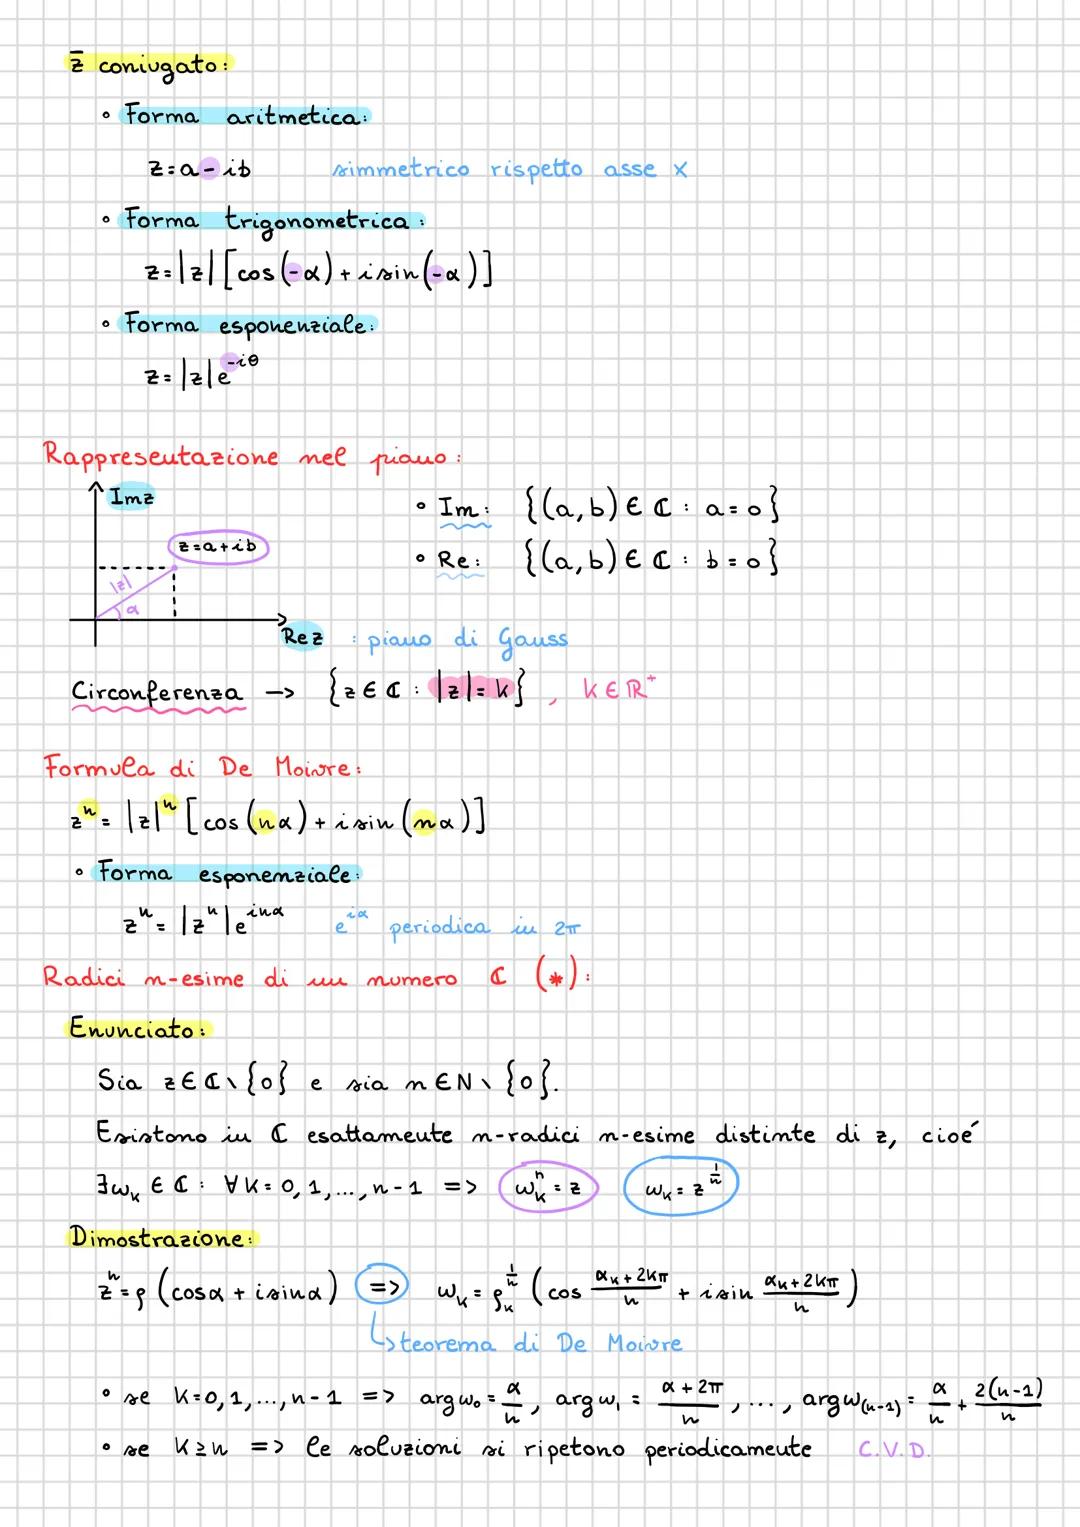 z̄ coniugato:
• Forma aritmetica:
z = a - ib simmetrico rispetto asse x
• Forma trigonometrica:
z = |z| [cos(-α) + i sin(-α)]
• Forma esponenziale:
z = |z| e^{-iθ}
Rappresentazione nel piano:
Im z
• Im: {(a,b) ∈ ℂ : a = 0}
z = a + ib
• Re: {(a,b) ∈ ℂ : b = 0}
|z|
α
Re z : piano di Gauss
Circonferenza -> {z ∈ ℂ : |z| = k}, k ∈ ℝ⁺
Formula di De Moivre:
zⁿ = |z|ⁿ [cos(nα) + i sin(nα)]
• Forma esponenziale:
zⁿ = |zⁿ| e^{inα} e^{iα} periodica in 2π
Radici n-esime di un numero ℂ (*):
Enunciato:
Sia z ∈ ℂ \ {0} e sia n ∈ N \ {0}.
Esistono in ℂ esattamente n-radici n-esime distinte di z, cioé
∃ω_k ∈ ℂ : ∀k = 0, 1, ..., n-1 => ω_k^n = z ω_k = z^{1/n}
Dimostrazione:
zⁿ = ρ (cosα + i sinα) => ω_k = ρ_k^{1/n} (cos (α_k + 2kπ)/n + i sin (α_k + 2kπ)/n)
↳ teorema di De Moivre
• se k = 0, 1, ..., n-1 => arg ω₀ = α/n, arg ω₁ = (α + 2π)/n, ..., arg ω_(n-1) = α/n + 2(n-1)/n
• se k ≥ n => le soluzioni si ripetono periodicamente C.V.D.